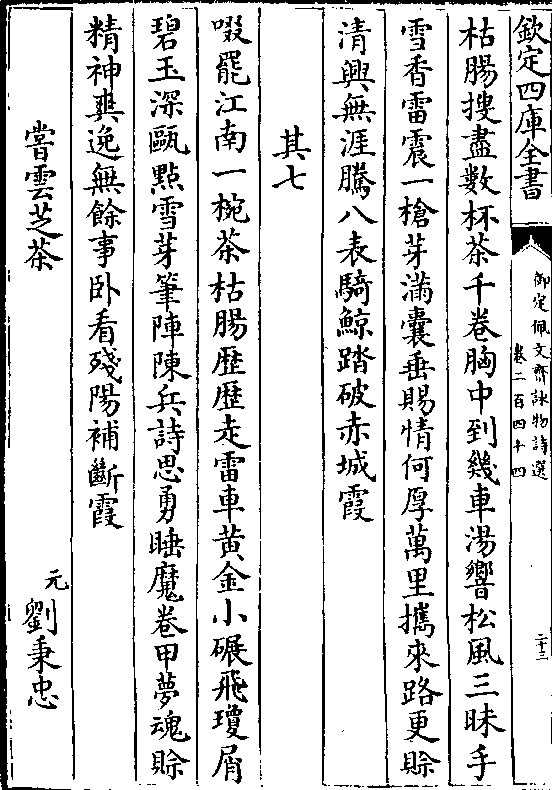 欽定四庫全書
御定佩文齋詠物詩選
卷二百四十四
二十三
枯腸搜盡數杯茶千卷胸中到幾車湯響松風三昧手
雪香雷震一槍芽滿囊垂賜情何厚萬里攜來路更賒
清興無涯騰八表騎鯨踏破赤城霞
其七
啜罷江南一椀茶枯腸歷歷走雷車黃金小碾飛瓊屑
碧玉深甌㸃雪芽筆陣陳兵詩思勇睡魔卷甲夢魂賒
精神爽逸無餘事卧看殘陽補斷霞
嘗雲芝茶
元劉秉忠